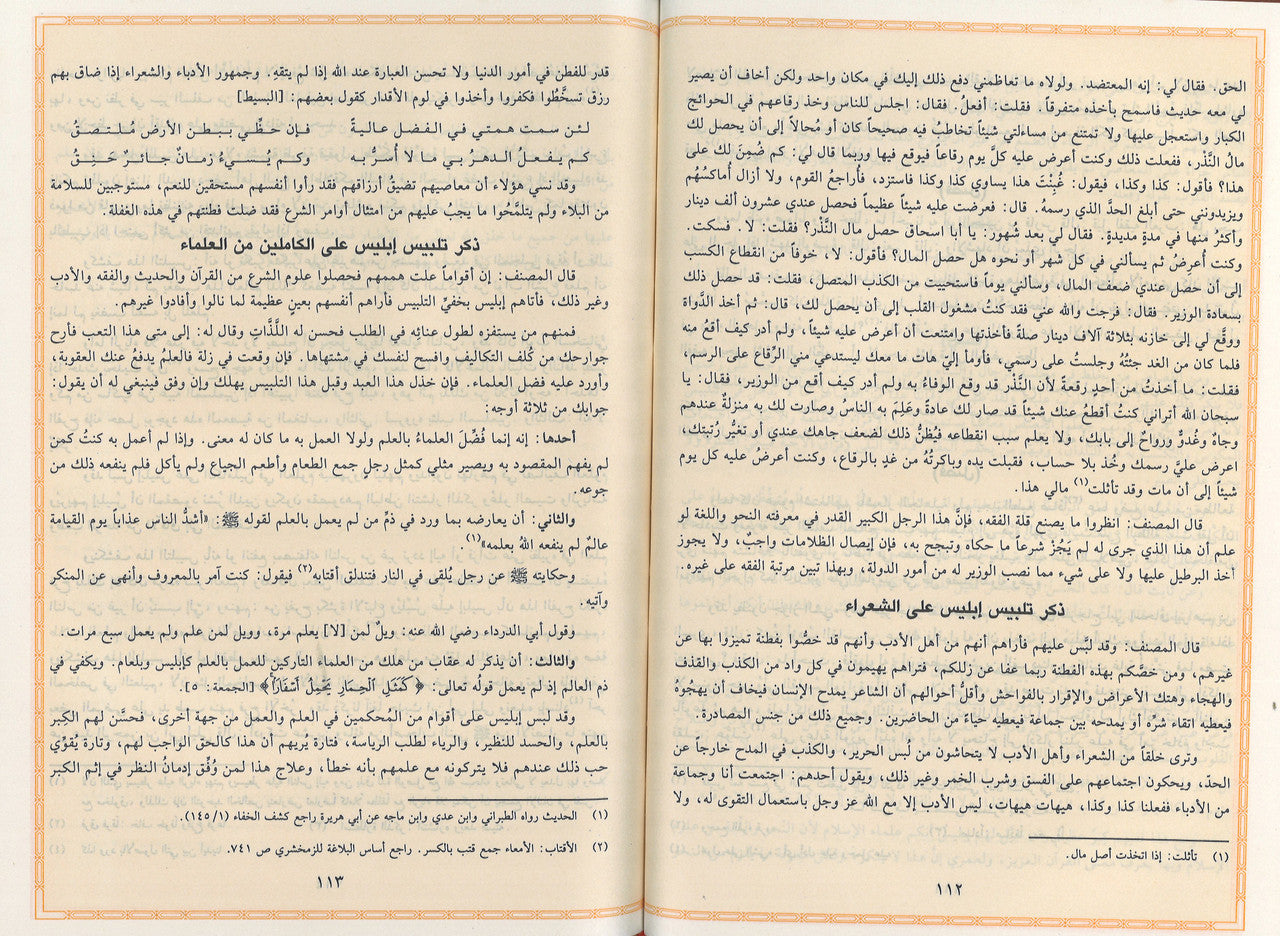 الحق. فقال لي: إنه المعتضد. ولولاه ما تعاظمني دفع ذلك إليك في مكان واحد ولكن أخاف أن يصير
لي معه حديث فاسمح بأخذه متفرقاً. فقلت: أفعلُ. فقال: اجلس للناس وخذ رقاعهم في الحوائج
الكبار واستعجل عليها ولا تمتنع من مساءلتي شيئاً تخاطبُ فيه صحيحاً كان أو مُحالاً إلى أن يحصل لك
مالُ النَّذْر، ففعلت ذلك وكنت أعرض عليه كلَّ يوم رقاعاً فيوقع فيها وربما قال لي: كم ضُمِنَ لك على
هذا؟ فأقول: كذا وكذا، فيقول: غُبِنْتَ هذا يساوي كذا وكذا فاستزد، فأُراجعُ القوم، ولا أزال أُماكسُهُم
ويزيدونني حتى أبلغ الحدَّ الذي رسمهُ. قال: فعرضت عليه شيئاً عظيماً فحصل عندي عشرون ألف دينار
وأكثرُ منها في مدةٍ مديدةٍ. فقال لي بعد شُهور: يا أبا اسحاق حصل مال النَّذْر؟ فقلت: لا. فسكت.
وكنت أُعرِضُ ثم يسألني في كلّ شهر أو نحوه هل حصل المال؟ فأقول: لا، خوفاً من انقطاع الكسب
إلى أن حصل عندي ضعف المال، وسألني يوماً فاستحييت من الكذب المتصل، فقلت: قد حصل ذلك
بسعادة الوزير. فقال: فرجت والله عني فقد كنتُ مشغول القلب إلى أن يحصل لك، قال: ثم أخذ الدَّواة
ووقَّع لي إلى خازنه بثلاثة آلاف دينار صلةً فأخذتها وامتنعت أن أعرض عليه شيئاً، ولم أدر كيف أقعُ منه
فلما كان من الغد جئتُهُ وجلستُ على رسمي، فأومأ إليّ هات ما معك ليستدعي مني الرِّقاع على الرسم،
فقلت: ما أخذتُ من أحدٍ رقعةً لأن النَّذْر قد وقع الوفاءُ به ولم أدر كيف أقع من الوزير، فقال: يا
سبحان الله أتراني كنتُ أقطعُ عنك شيئاً قد صار لك عادةً وعَلِمَ به الناسُ وصارت لك به منزلةٌ عندهم
وجاهٌ وغُدوٌّ ورواحٌ إلى بابك، ولا يعلم سبب انقطاعه فيُظنُّ ذلك لضعف جاهك عندي أو تغيُّر رُتبتك،
اعرض عليَّ رسمك وخُذ بلا حساب، فقبلت يده وباكرتُهُ من غدٍ بالرقاع، وكنت أعرضُ عليه كل يوم
شيئاً إلى أن مات وقد تأثلت(١) مالي هذا.
قال المصنف: انظروا ما يصنع قلة الفقه، فإنَّ هذا الرجل الكبير القدر في معرفته النحو واللغة لو
علم أن هذا الذي جرى له لم يَجُزْ شرعاً ما حكاه وتبجح به، فإن إيصال الظلامات واجبٌ، ولا يجوز
أخذ البرطيل عليها ولا على شيء مما نصب الوزير له من أمور الدولة، وبهذا تبين مرتبة الفقه على غيره.
ذكر تلبيس إبليس على الشعراء
قال المصنف: وقد لبَّس عليهم فأراهم أنهم من أهل الأدب وأنهم قد خصُّوا بفطنة تميزوا بها عن
غيرهم، ومن خصَّكم بهذه الفطنة ربما عفا عن زللكم، فتراهم يهيمون في كل واد من الكذب والقذف
والهجاء وهتك الأعراض والإقرار بالفواحش وأقلُّ أحوالهم أن الشاعر يمدح الإنسان فيخاف أن يهجُوهُ
فيعطيه اتقاء شرِّه أو يمدحه بين جماعة فيعطيه حياءً من الحاضرين. وجميع ذلك من جنس المصادرة.
وترى خلقاً من الشعراء وأهل الأدب لا يتحاشون من لُبس الحرير، والكذب في المدح خارجاً عن
الحدّ، ويحكون اجتماعهم على الفسق وشرب الخمر وغير ذلك، ويقول أحدهم: اجتمعت أنا وجماعة
من الأدباء ففعلنا كذا وكذا، هيهات هيهات، ليس الأدب إلا مع الله عز وجل باستعمال التقوى له، ولا
(١) تأثلت: إذا اتخذت أصل مال.
١١٢
قدر للفطن في أمور الدنيا ولا تحسن العبارة عند الله إذا لم يتقهِ. وجمهور الأدباء والشعراء إذا ضاق بهم
رزق تسخَّطُوا فكفروا وأخذوا في لوم الأقدار كقول بعضهم: [البسيط]
لئن سمت همتي في الفضل عاليةً فإن حظِّي ببطن الأرض مُلتصقُ
كم يفعلُ الدهرُ بي ما لا أُسرُّ به وكم يُسيءُ زمانٌ جائرٌ حَنِقُ
وقد نسي هؤلاء أن معاصيهم تضيقُ أرزاقهم فقد رأوا أنفسهم مستحقين للنعم، مستوجبين للسلامة
من البلاء ولم يتلمَّحُوا ما يجبُ عليهم من امتثال أوامر الشرع فقد ضلت فطنتهم في هذه الغفلة.
ذكر تلبيس إبليس على الكاملين من العلماء
قال المصنف: إن أقواماً علت هممهم فحصلوا علوم الشرع من القرآن والحديث والفقه والأدب
وغير ذلك، فأتاهم إبليس بخفيِّ التلبيس فأراهم أنفسهم بعينٍ عظيمة لما نالوا وأفادوا غيرهم.
فمنهم من يستفزه لطول عنائِه في الطلب فحسن له اللَّذَّاتِ وقال له: إلى متى هذا التعب فأرح
جوارحك من كُلف التكاليف وافسح لنفسك في مشتهاها. فإن وقعت في زلة فالعلمُ يدفعُ عنك العقوبة،
وأورد عليه فضل العلماء. فإن خذل هذا العبد وقبل هذا التلبيس يهلك وإن وفق فينبغي له أن يقول:
جوابك من ثلاثة أوجه:
أحدها: إنه إنما فُضِّلَ العلماءُ بالعلم ولولا العمل به ما كان له معنى. وإذا لم أعمل به كنتُ كمن
لم يفهم المقصود به ويصير مثلي كمثل رجلٍ جمع الطعام وأطعم الجياع ولم يأكل فلم ينفعه ذلك من
جوعه.
والثاني: أن يعارضه بما ورد في ذمِّ من لم يعمل بالعلم لقوله ﷺ: «أشدُّ الناس عذاباً يوم القيامة
عالمٌ لم ينفعه اللهُ بعلمه»(١)
وحكايته ﷺ عن رجل يُلقى في النار فتندلق أقتابه(٢) فيقول: كنت آمر بالمعروف وأنهى عن المنكر
وآتيه.
وقول أبي الدرداء رضي الله عنه: ويلٌ لمن [لا] يعلم مرة، وويل لمن علم ولم يعمل سبع مرات.
والثالث: أن يذكر له عقاب من هلك من العلماء التاركين للعمل بالعلم كإبليس وبلعام. ويكفي في
ذم العالم إذ لم يعمل قولُه تعالى: ﴿كَمَثَلِ الْحِمَارِ يَحْمِلُ أَسْفَاراً﴾ [الجمعة: ٥].
وقد لبس إبليس على أقوام من المُحكمين في العلم والعمل من جهة أخرى، فحسَّن لهم الكِبر
بالعلم، والحسد للنظير، والرياء لطلب الرياسة، فتارة يُريهم أن هذا كالحق الواجب لهم، وتارة يُقوِّي
حب ذلك عندهم فلا يتركونه مع علمهم بأنه خطأ، وعلاج هذا لمن وُفِّق إدمانُ النظر في إثم الكبر
(١) الحديث رواه الطبراني وابن عدي وابن ماجه عن أبي هريرة راجع كشف الخفاء (١/١٤٥).
(٢) الأقتاب: الأمعاء جمع قتب بالكسر. راجع أساس البلاغة للزمخشري ص ٧٤١.
١١٣